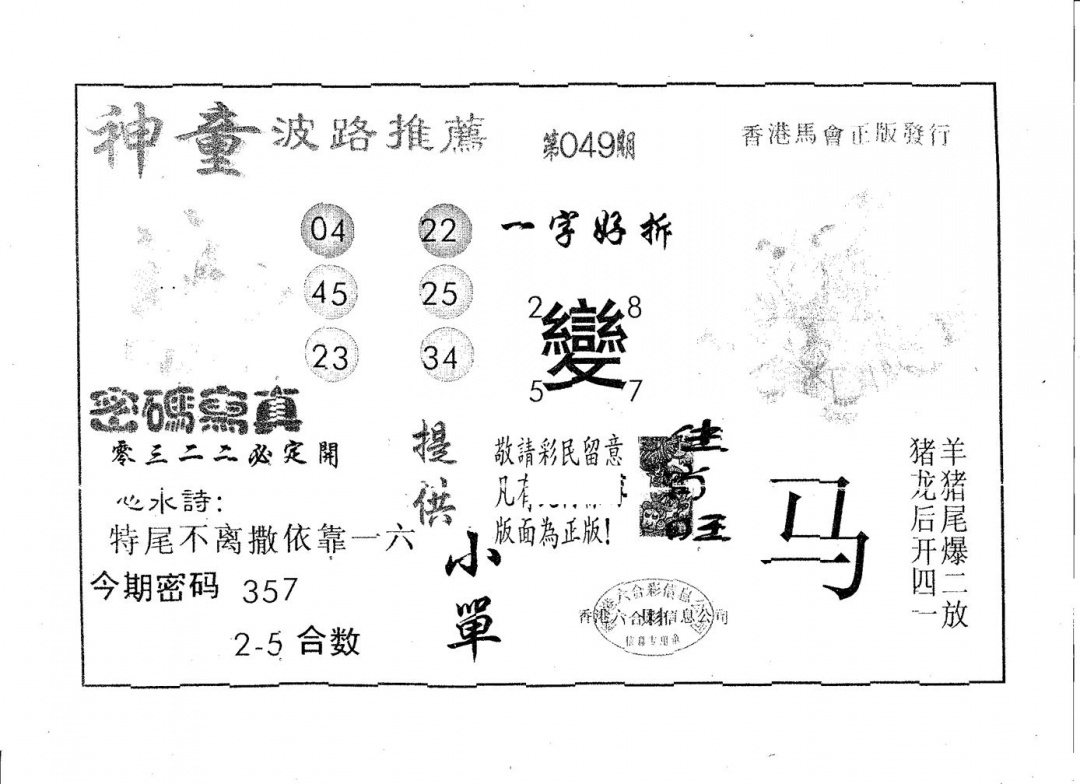 神童波路推薦
第049期
香港馬會正版發行
04 22
45 25
23 34
一字好拆
2 8
變
5 7
密碼寫真
零三二二必定開
心水詩:
特尾不离撒依靠一六
今期密码 357
2-5 合数
提供
小單
敬請彩民留意
凡有
版面為正版!
马
羊猪尾爆二放
猪龙后开四一
香港六合彩信息公司
香港六合彩信息公司